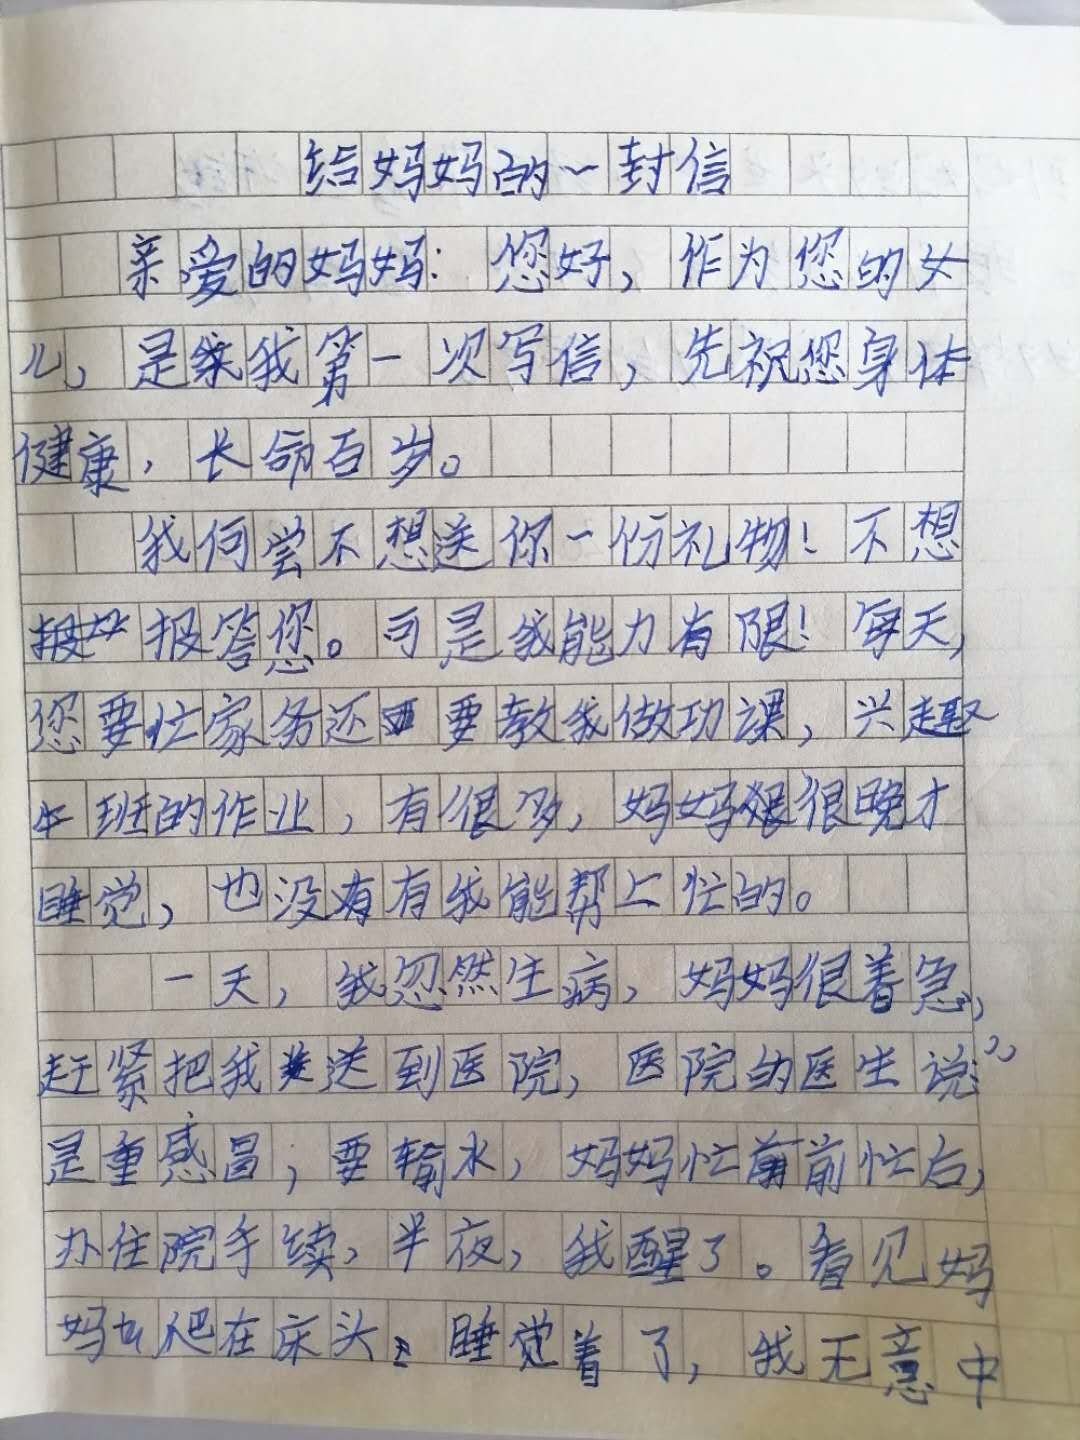 给妈妈的一封信
亲爱的妈妈：您好，作为您的女
儿，是我第一次写信，先祝您身体
健康，长命百岁。
我何尝不想送你一份礼物！不想
报答您。可是我能力有限！每天，
您要忙家务还要教我做功课，兴趣
班的作业，有很多，妈妈很晚才
睡觉，也没有我能帮上忙的。
一天，我忽然生病，妈妈很着急，
赶紧把我送到医院，医院的医生说：“
是重感冒，要输水，妈妈忙前忙后，
办住院手续，半夜，我醒了。看见妈
妈爬在床头，睡觉着了，我无意中